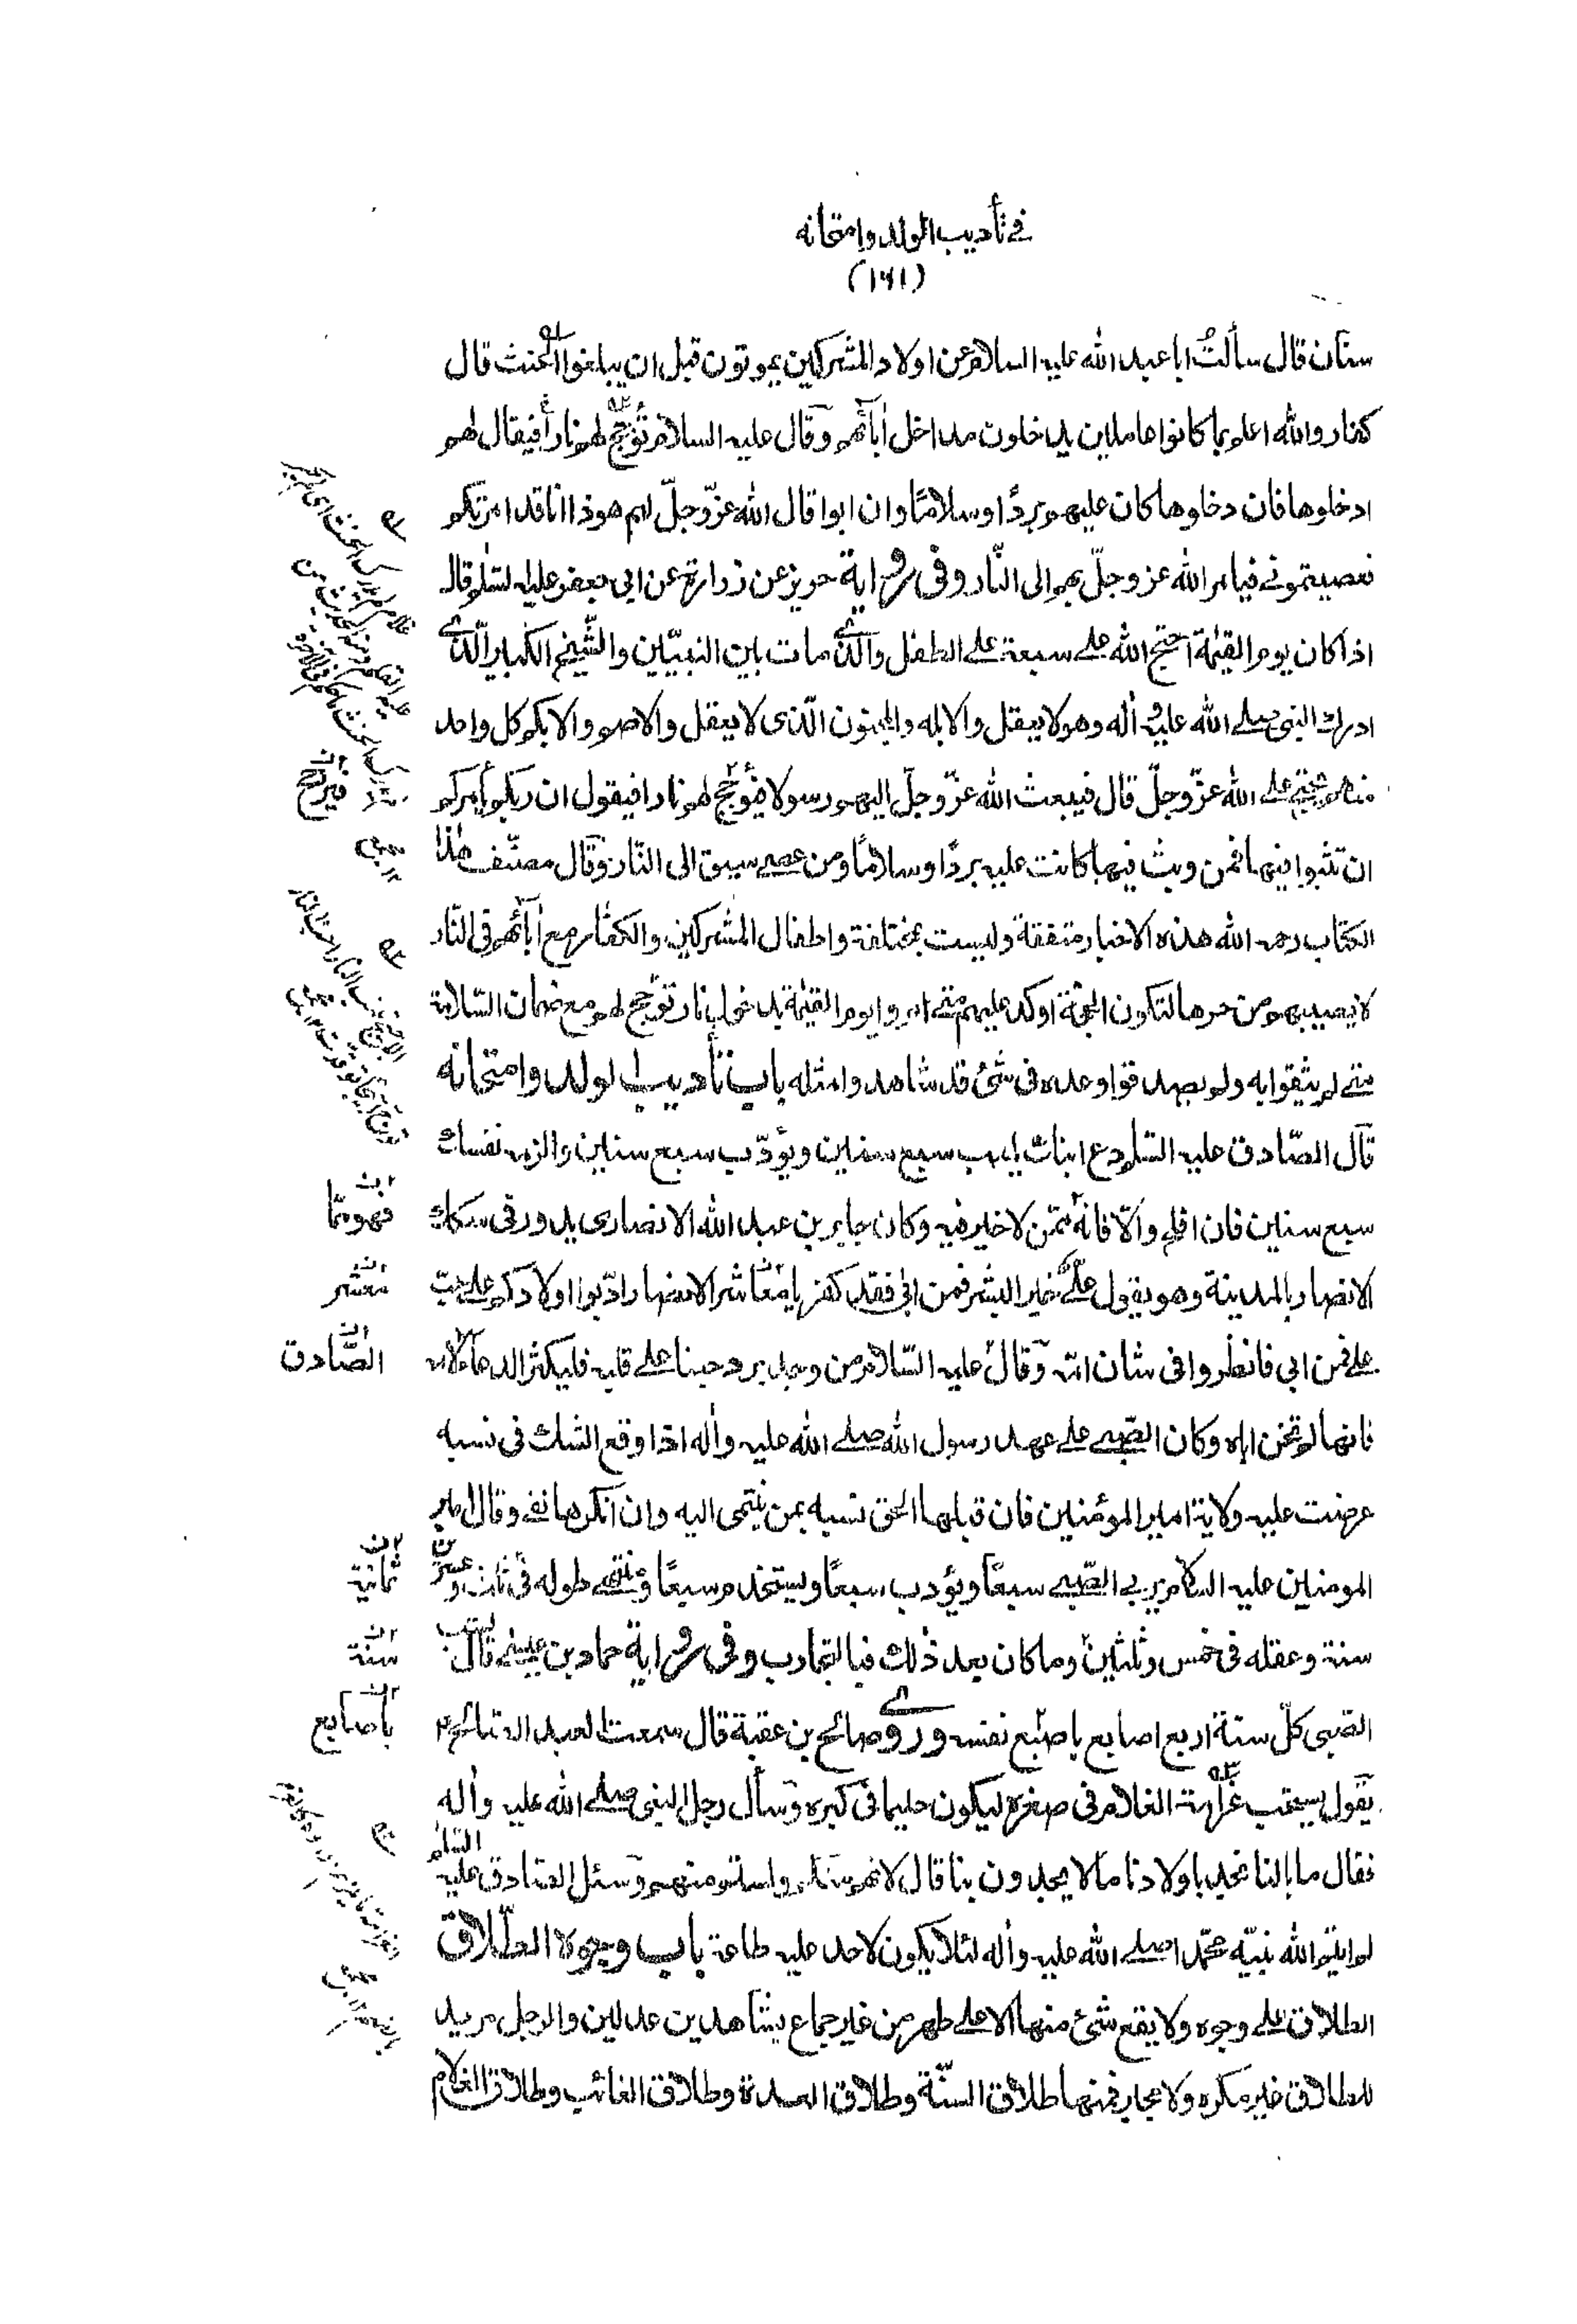 في تأديب الولد وامتحانه
(١٦١)
سنان قال سألت ابا عبد الله عليه السلام عن اولاد المشركين يموتون قبل ان يبلغوا الحنث قال
كفار والله اعلم بما كانوا عاملين يدخلون مداخل اٰبائهم وقال عليه السلام تؤجج لهم نارا فيقال لهم
ادخلوها فان دخلوها كان عليهم بردًا وسلامًا وان ابوا قال الله عزّ وجلّ لهم هو ذا انا قد امرتكم
فعصيتموني فيامر الله عز وجلّ بهم الى النّار وفى رواية حريز عن زرارة عن ابى جعفر عليه السلم قال
اذا كان يوم القيٰمة احتج الله على سبعة على الطفل والّذى مات بين النبيّين والشّيخ الكبير الّذى
ادرك النبى صلى الله عليه واٰله وهو لا يعقل والابله والمجنون الّذى لا يعقل والاصم والابكم كل واحد
منهم يحتج على الله عزّ وجلّ قال فيبعث الله عزّ وجلّ اليهم رسولا فيؤجج لهم نارا فيقول ان ربكم يأمركم
ان تثبوا فيها فمن وثب فيها كانت عليه بردًا وسلامًا ومن عصى سيق الى النّار وقال مصنّف هٰذا
الكتاب رحمه الله هذه الاخبار متفقة وليست بمختلفة واطفال المشركين والكفّار مع اٰبائهم فى النّار
لا يصيبهم من حرها لتكون الحجّة اوكد عليهم متى امروا يوم القيٰمة بدخول نار تؤجج لهم مع ضمان السّلامة
متى لم يثقوا به ولم يصدقوا وعده فى شئ قد شاهدوا مثله باب تأديب الولد وامتحانه
قال الصّادق عليه السّلم دع ابنك يلعب سبع سنين ويؤدّب سبع سنين والزمه نفسك
سبع سنين فان افلح والّا فانّه ممّن لا خير فيه وكان جابر بن عبد الله الانصارى يدور فى سكك
الانصار بالمدينة وهو يقول علىّ خير البشر فمن ابى فقد كفر يا معاشر الانصار ادّبوا اولادكم على حب
على فمن ابى فانظروا فى شان امّه وقال عليه السّلام من وجد برد حبنا على قلبه فليكثر الدعاء لامه
فانها لم تخن اباه وكان الصّبى على عهد رسول الله صلى الله عليه واٰله اذا وقع الشك فى نسبه
عرضت عليه ولاية امير المؤمنين فان قبلها الحق نسبه بمن ينتمى اليه وان انكرها نفى وقال امير
المومنين عليه السلام يربى الصّبى سبعًا ويؤدب سبعًا ويستخدم سبعًا وينتهى طوله فى ثلث وعشرين
سنة وعقله فى خمس وثلثين وما كان بعد ذلك فبالتجارب وفى رواية حماد بن عيسى قال يشب
الصّبى كلّ سنة اربع اصابع باصبع نفسه وروى صالح بن عقبة قال سمعت العبد الصّالح ع
يقول يستحب غرامة الغلام فى صغره ليكون حليما فى كبره وسأل رجل النبى صلى الله عليه واٰله
فقال ما بالنا نجد باولادنا ما لا يجدون بنا قال لانهم منكم ولستم منهم وسئل الصّادق عليه السّلم
لم ايتم الله نبيّه محمّدا صلى الله عليه واٰله لئلا يكون لاحد عليه طاعة باب وجوه الطّلاق
الطلاق على وجوه ولا يقع شئ منها الا على طهر من غير جماع بشاهدين عدلين والرجل مريد
للطلاق غير مكره ولا مجبر فمنها طلاق السنّة وطلاق العدة وطلاق الغائب وطلاق الغلام
فهو ممّا
معشر
الصّادق
ثمانية
سنة
باصابع